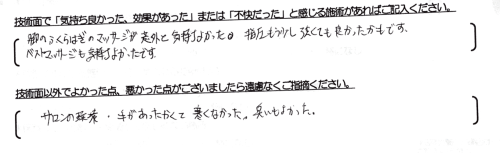 技術面で「気持ち良かった、効果があった」または「不快だった」と感じる施術があればご記入ください。
脚のふくらはぎのマッサージが意外と気持よかった。指圧もう少し強くても良かったかもです。
ベストマッサージも気持よかったです。
技術面以外でよかった点、悪かった点がございましたら遠慮なくご指摘ください。
サロンの・手があったかくて寒くなかった。臭いもよかった。